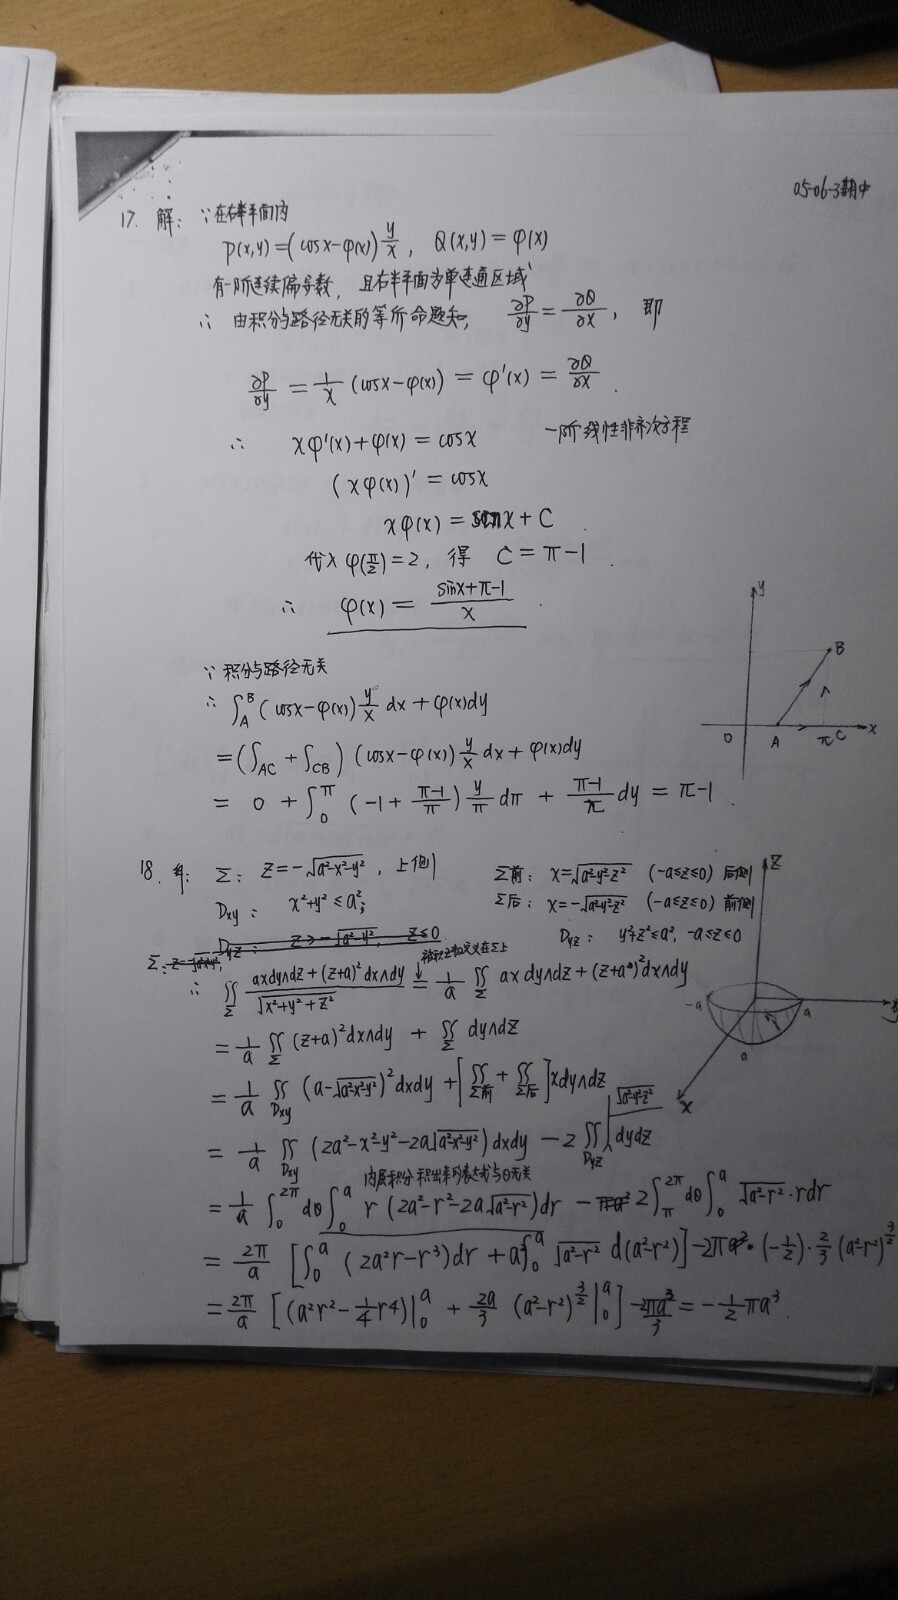 05-06-3期中
17. 解: ∵在右半平面内
P(x,y)=(cosx-φ(x))y/x, Q(x,y)=φ(x)
有一阶连续偏导数, 且右半平面为单连通区域
∴ 由积分与路径无关的等价命题知, ∂P/∂y=∂Q/∂x, 即
∂P/∂y = 1/x (cosx-φ(x)) = φ'(x) = ∂Q/∂x.
∴ xφ'(x)+φ(x) = cosx 一阶线性非齐次方程
(xφ(x))' = cosx
xφ(x) = sinx + C.
代入 φ(π/2)=2, 得 C = π-1.
∴ φ(x) = (sinx+π-1)/x.
y
B
O A π C x
∵ 积分与路径无关
∴ ∫_A^B (cosx-φ(x)) y/x dx + φ(x)dy
=(∫_AC + ∫_CB) (cosx-φ(x)) y/x dx + φ(x)dy
= 0 + ∫_0^π (-1 + (π-1)/π) y/π dπ + (π-1)/π dy = π-1.
18. 解: Σ: z=-√(a²-x²-y²), 上侧 Σ前: x=√(a²-y²-z²) (-a≤z≤0) 后侧
Dxy: x²+y²≤a²; Σ后: x=-√(a²-y²-z²) (-a≤z≤0) 前侧
Dyz: z>-√(a²-y²), z≤0 Dyz: y²+z²≤a², -a≤z≤0
∴ ∬_Σ (axdy∧dz+(z+a)²dx∧dy)/√(x²+y²+z²) = 1/a ∬_Σ ax dy∧dz+(z+a)²dx∧dy
= 1/a ∬_Σ (z+a)²dx∧dy + ∬_Σ dy∧dz
= 1/a ∬_Dxy (a-√(a²-x²-y²))²dxdy + [∬_Σ前 + ∬_Σ后]xdy∧dz
= 1/a ∬_Dxy (2a²-x²-y²-2a√(a²-x²-y²))dxdy - 2∬_Dyz √(a²-y²-z²) dydz
内层积分积出来的表达式与θ无关
= 1/a ∫_0^2π dθ∫_0^a r(2a²-r²-2a√(a²-r²))dr - 2∫_π^2π dθ∫_0^a √(a²-r²)·rdr
= 2π/a [∫_0^a (2a²r-r³)dr + a∫_0^a √(a²-r²) d(a²-r²)] - 2π·(-1/2)·2/3(a²-r²)^(3/2)
= 2π/a [(a²r²-1/4r⁴)|_0^a + 2a/3 (a²-r²)^(3/2)|_0^a] - 2πa³/3 = -1/2πa³.
z
-a a y
a
x